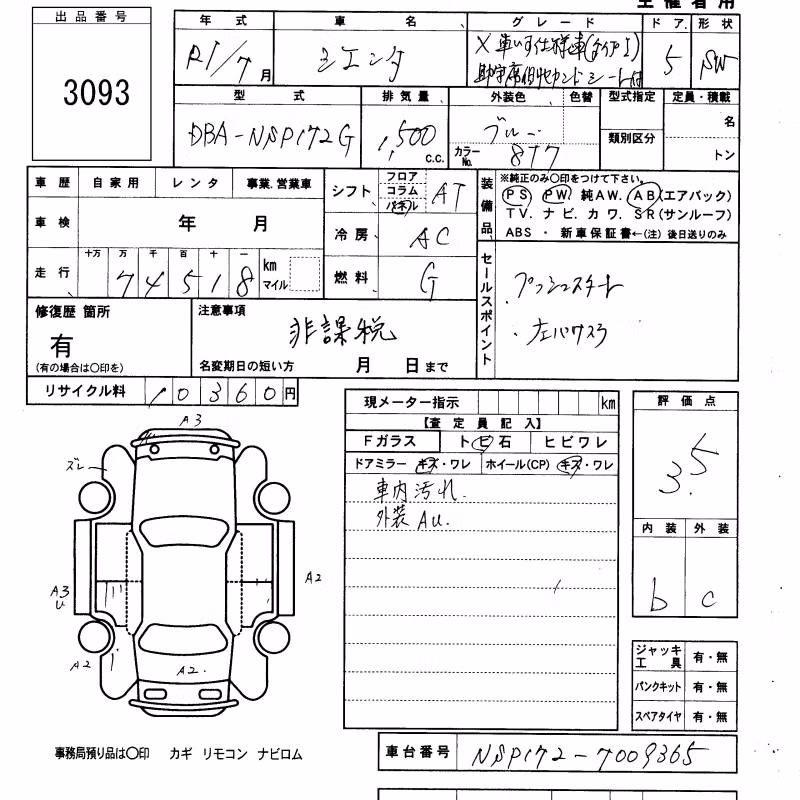 主催者用
出品番号
3093
年式 車名 グレード ドア 形状
R1/7月 シエンタ X 車いす仕様車(タイプI) 5 SW
助手席側セカンドシート付
型式 排気量 外装色 色替 型式指定 定員・積載
DBA-NSP172G 1,500 C.C. ブルー 名
カラーNo. 8T7 類別区分 トン
車歴 自家用 レンタ 事業.営業車
車検 年 月
走行 十万 万 千 百 十 一 km マイル
74518
シフト フロア コラム パネル AT
冷房 AC
燃料 G
装備品 ※純正のみ〇印をつけて下さい。
PS PW 純AW. AB(エアバック)
TV. ナビ. カワ. SR(サンルーフ)
ABS ・ 新車保証書←(注) 後日送りのみ
セールスポイント
・プッシュスタート
・左パワスラ
修復歴 箇所
有
(有の場合は〇印を)
注意事項
非課税
名変期日の短い方 月 日まで
リサイクル料 10360円
現メーター指示 km
【査定員記入】
Fガラス トビ石 ヒビワレ
ドアミラー キズ・ワレ ホイール(CP) キズ・ワレ
車内汚れ.
外装AU.
評価点
3.5
内装 外装
b c
A3
ズレ
A3
U
A2
A2
A2.
ジャッキ工具 有・無
パンクキット 有・無
スペアタイヤ 有・無
事務局預り品は〇印 カギ リモコン ナビロム
車台番号 NSP172-7009365